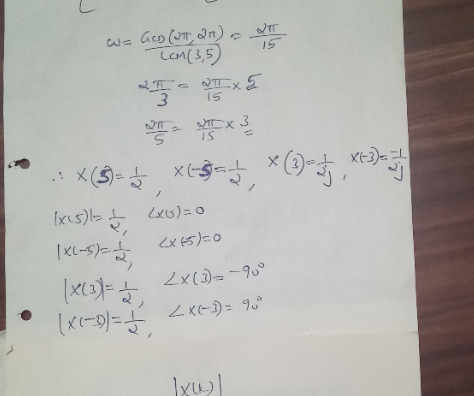 ω = GCD(2π, 2π) / LCM(3,5) = 2π/15
2π/3 = 2π/15 × 5
2π/5 = 2π/15 × 3
∴ X(5)=1/2, X(-5)=1/2, X(3)=1/2j, X(-3)=-1/2j
|X(5)|=1/2, ∠X( )=0
|X(-5)|=1/2, ∠X(-5)=0
|X(3)|=1/2, ∠X(3)=-90°
|X(-3)|=1/2, ∠X(-3)=90°
|X(k)|